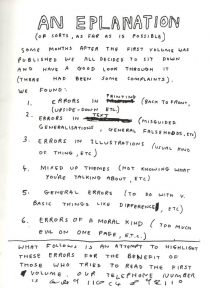 AN EPLANATION
(OR SORTS, AS FAR AS IS POSSIBLE)
SOME MONTHS AFTER THE FIRST VOLUME WAS
PUBLISHED WE ALL DECIDED TO SIT DOWN
AND HAVE A GOOD LOOK THROUGH IT
(THERE HAD BEEN SOME COMPLAINTS).
WE FOUND:
1. ERRORS IN PRINTING (BACK TO FRONT,
UPSIDE-DOWN ETC)
2. ERRORS IN TEXT (MISGUIDED
GENERALISATIONS, GENERAL FALSEHOODS, ETC)
3. ERRORS IN ILLUSTRATIONS (USUAL KIND
OF THING, ETC)
4. MIXED UP THEMES (NOT KNOWING WHAT
YOU'RE TALKING ABOUT, ETC)
5. GENERAL ERRORS (TO DO WITH
BASIC THINGS LIKE DIFFERENCE, ETC)
6. ERRORS OF A MORAL KIND (TOO MUCH
EVIL ON ONE PAGE, E.T.C.)
WHAT FOLLOWS IS AN ATTEMPT TO HIGHLIGHT
THESE ERRORS FOR THE BENEFIT OF
THOSE WHO TRIED TO READ THE FIRST
VOLUME. OUR TELEPHONE NUMBER
IS